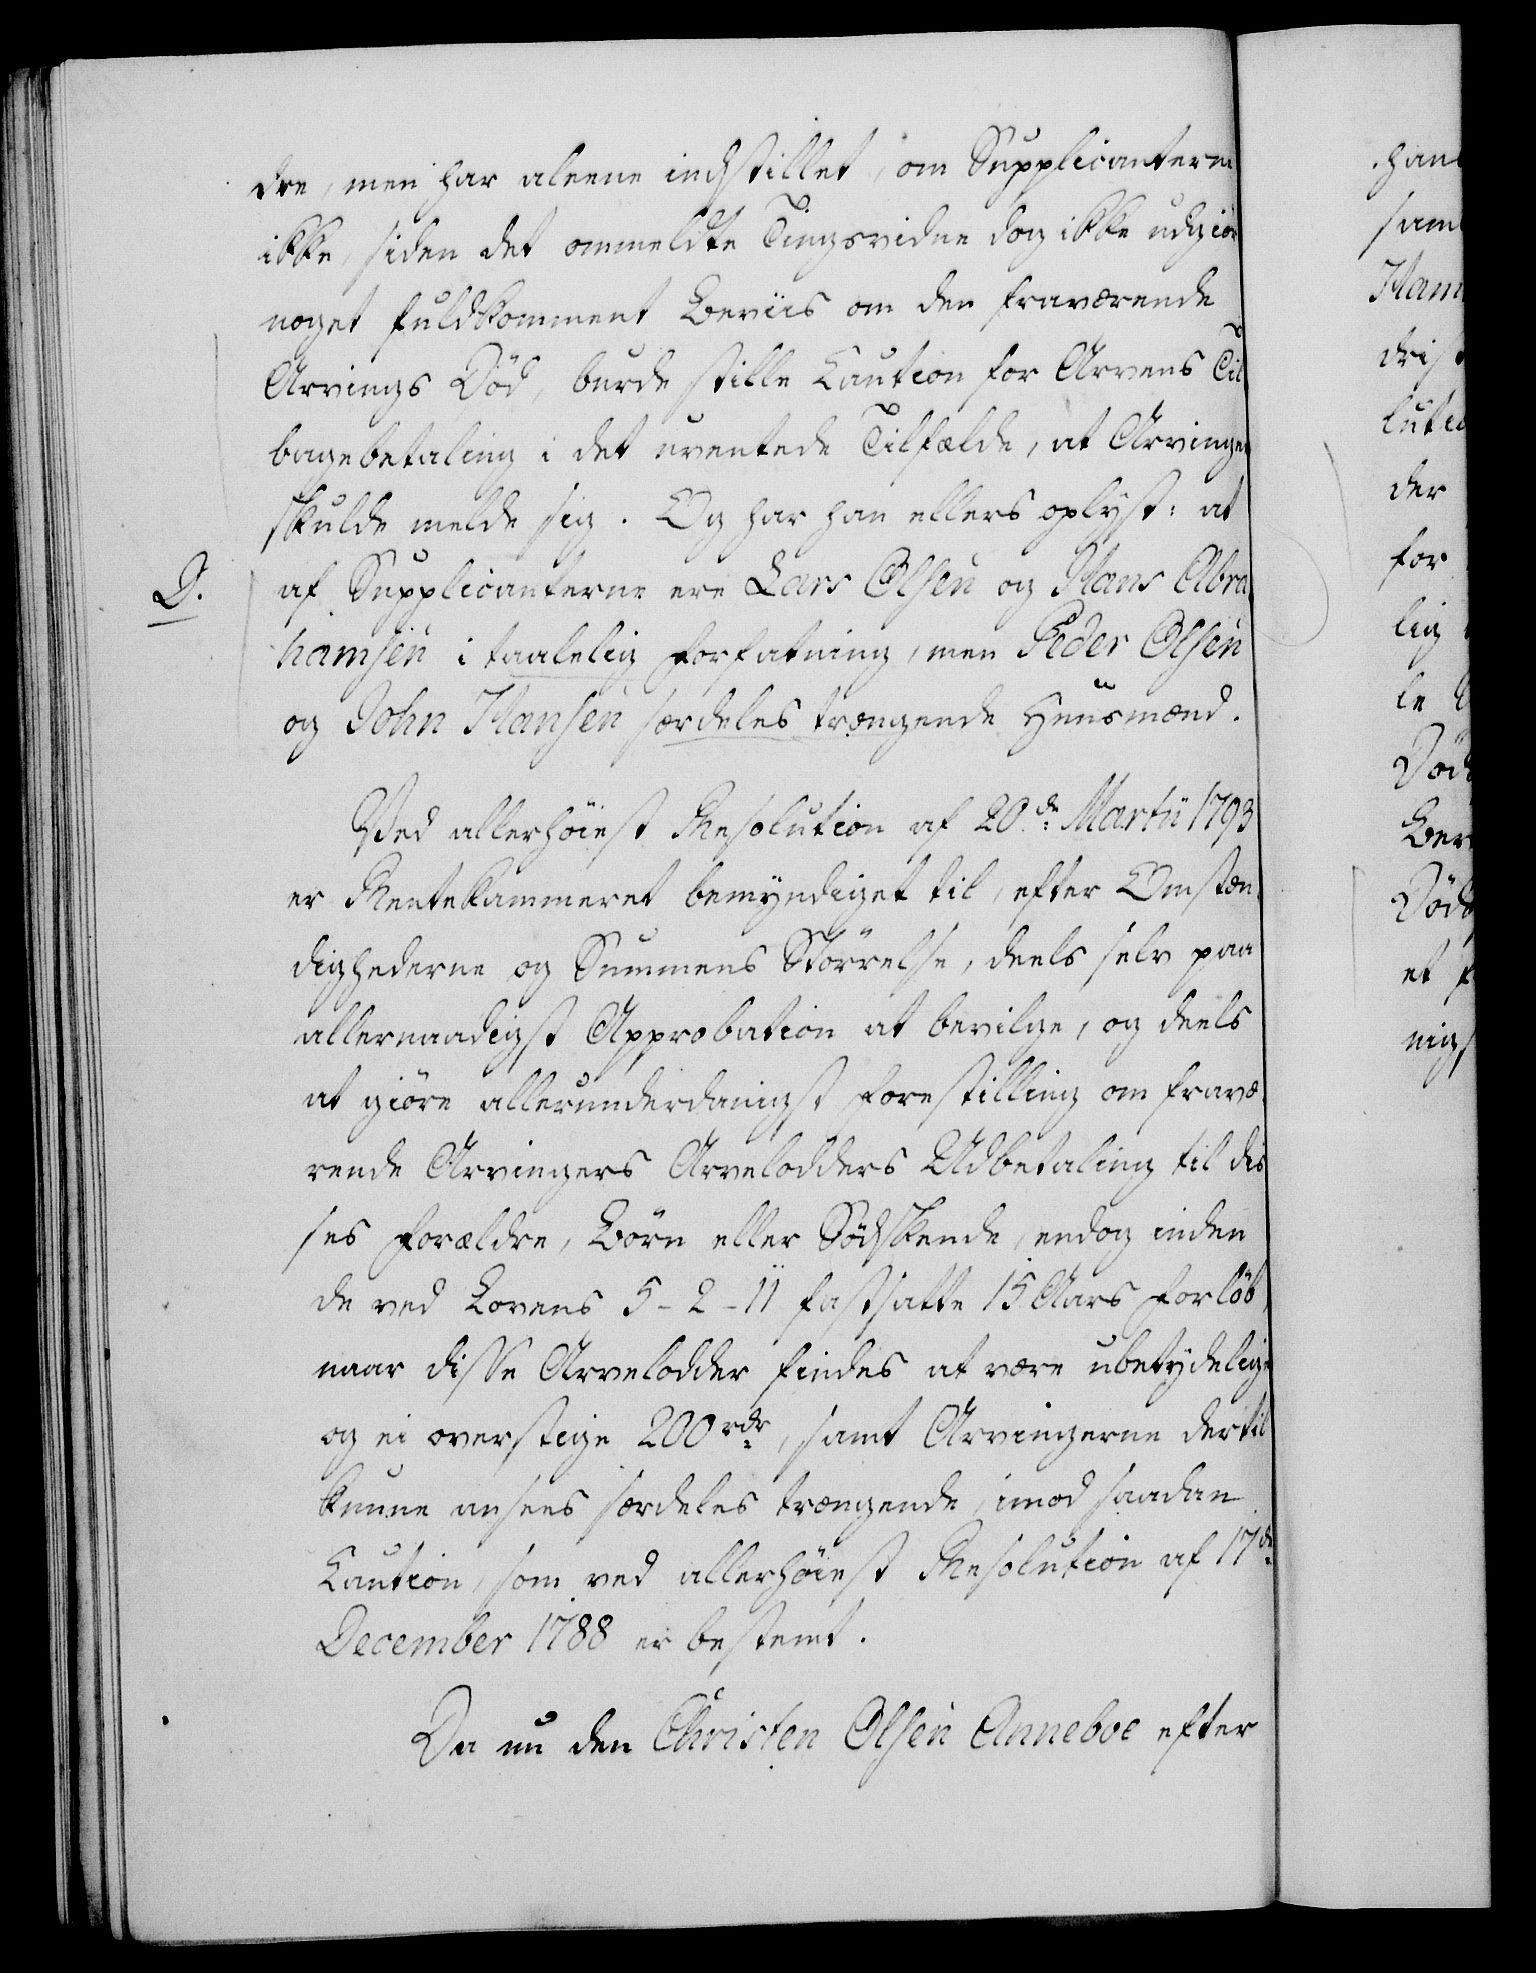 dre, men har aleene indstillet, om Supplicanterne
ikke, siden det ommeldte Tingsvidne dog ikke udgiør
noget fuldkomment Beviis om den fraværende
Arvings Død, burde stille Caution for Arvens Til
bagebetaling i det uventede Tilfælde, at Arvingen
skulde melde sig. Og har han ellers oplyst: at
D.
af Supplicanterne ere Lars Olsen og Hans Abra
hamsen i taalelig Forfatning, men Peder Olsen
og John Hansen særdeles trængende Huusmænd.
Ved allerhøiest Resolution af 20de Martii 1793
er Rentekammeret bemyndiget til, efter Omstæn
dighederne og Summens Størrelse, deels selv paa
allernaadigst Approbation at bevilge, og deels
at giøre allerunderdanigst Forestilling om fravæ
rende Arvingers Arvelodders Udbetaling til dis
ses Forældre, Børn eller Sødskende, endog inden
de ved Lovens 5-2-11 fastsatte 15 Aars Forløb,
naar disse Arvelodder findes at være ubetydelige
og ei overstige 200 rdr, samt Arvingerne dertil
kunne ansees særdeles trængende, imod saadan
Caution, som ved allerhøiest Resolution af 17de
December 1788 er bestemt.
Da nu den Christen Olsen Anneboe efter